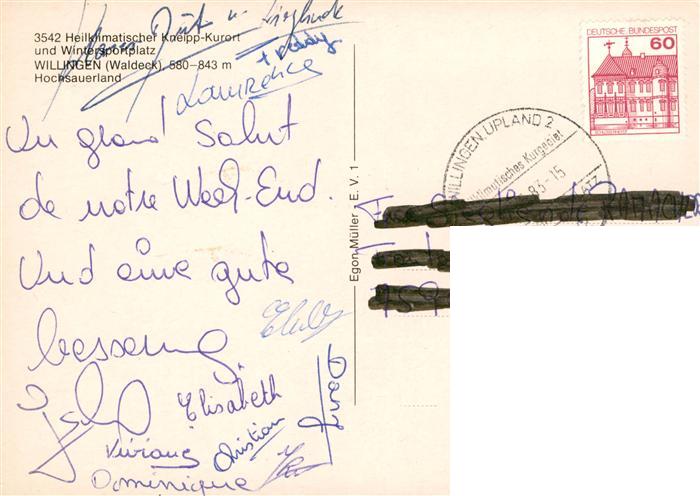 3542 Heilklimatischer Kneipp-Kurort
und Wintersportplatz
WILLINGEN (Waldeck), 580–843 m
Hochsauerland
u. Sieglinde
+ Freddy
Laurence
Un grand Salut
de notre Week-End.
Und eine gute
besserung
Elisabeth
Viviane
Christian
Dominique
Dany
Egon Müller · E. V. 1
DEUTSCHE BUNDESPOST
60
WILLINGEN, UPLAND 2
Kurgebiet
83-15